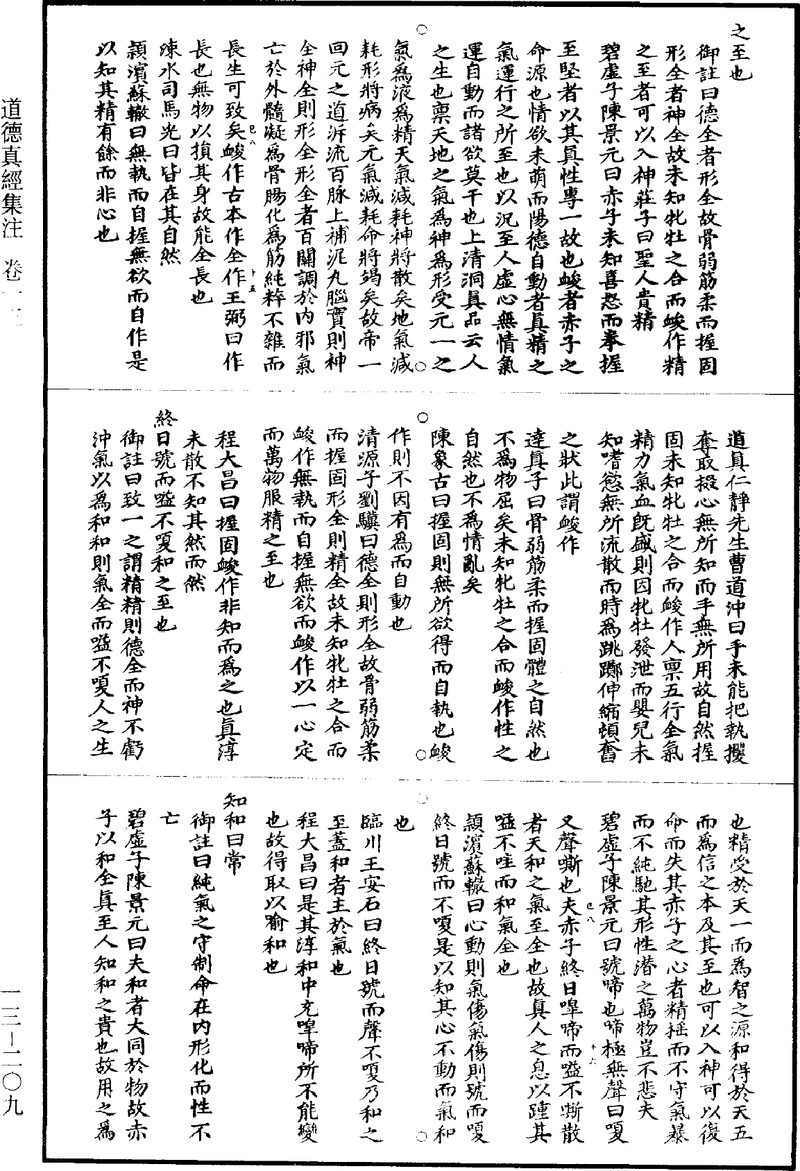 之至也
御註曰德全者形全故骨弱筋柔而握固
形全者神全故未知牝牡之合而峻作精
之至者可以入神莊子曰聖人貴精
碧虛子陳景元曰赤子未知喜怒而拳握
至堅者以其真性專一故也峻者赤子之
命源也情欲未萌而陽德自動者真精之
氣運行之所至也以況至人虛心無情氣
運自動而諸欲莫干也上清洞真品云人
之生也稟天地之氣為神為形受元一之
氣為液為精天氣減耗神將散矣地氣減
耗形將病矣元氣減耗命將竭矣故帝一
回元之道泝流百脉上補泥丸腦實則神
全神全則形全形全者百關調於內邪氣
亡於外髓凝為骨腸化為筋純粹不雜而
長生可致矣峻作古本作全作王弼曰作
長也無物以損其身故能全長也
涑水司馬光曰皆在其自然
頴濱蘇轍曰無執而自握無欲而自作是
以知其精有餘而非心也
道真仁靜先生曹道沖曰手未能把執攫
奪取掇心無所知而手無所用故自然握
固未知牝牡之合而峻作人稟五行全氣
精力氣血旣盛則因牝牡發泄而嬰兒未
知嗜慾無所流散而時為跳躑伸縮頓奮
之狀此謂峻作
達真子曰骨弱筋柔而握固體之自然也
不為物屈矣未知牝牡之合而峻作性之
自然也不為情亂矣
陳象古曰握固則無所欲得而自執也峻
作則不因有為而自動也
清源子劉驥曰德全則形全故骨弱筋柔
而握固形全則精全故未知牝牡之合而
峻作無執而自握無欲而峻作以一心定
而萬物服精之至也
程大昌曰握固峻作非知而為之也真淳
未散不知其然而然
終日號而嗌不嗄和之至也
御註曰致一之謂精精則德全而神不虧
沖氣以為和和則氣全而嗌不嗄人之生
也精受於天一而為智之源和得於天五
而為信之本及其至也可以入神可以復
命而失其赤子之心者精搖而不守氣暴
而不純馳其形性潛之萬物豈不悲夫
碧虛子陳景元曰號啼也啼極無聲曰嗄
又聲嘶也夫赤子終日嘷啼而嗌不嘶散
者天和之氣至全也故真人之息以踵其
嗌不哇而和氣全也
頴濱蘇轍曰心動則氣傷氣傷則號而嗄
終日號而不嗄是以知其心不動而氣和
也
臨川王安石曰終日號而聲不嗄乃和之
至蓋和者主於氣也
程大昌曰是其淳和中充嘷啼所不能變
也故得取以喻和也
知和曰常
御註曰純氣之守制命在內形化而性不
亡
碧虛子陳景元曰夫和者大同於物故赤
子以和全真至人知和之貴也故用之為
道德真經集注 卷
一三—二〇九